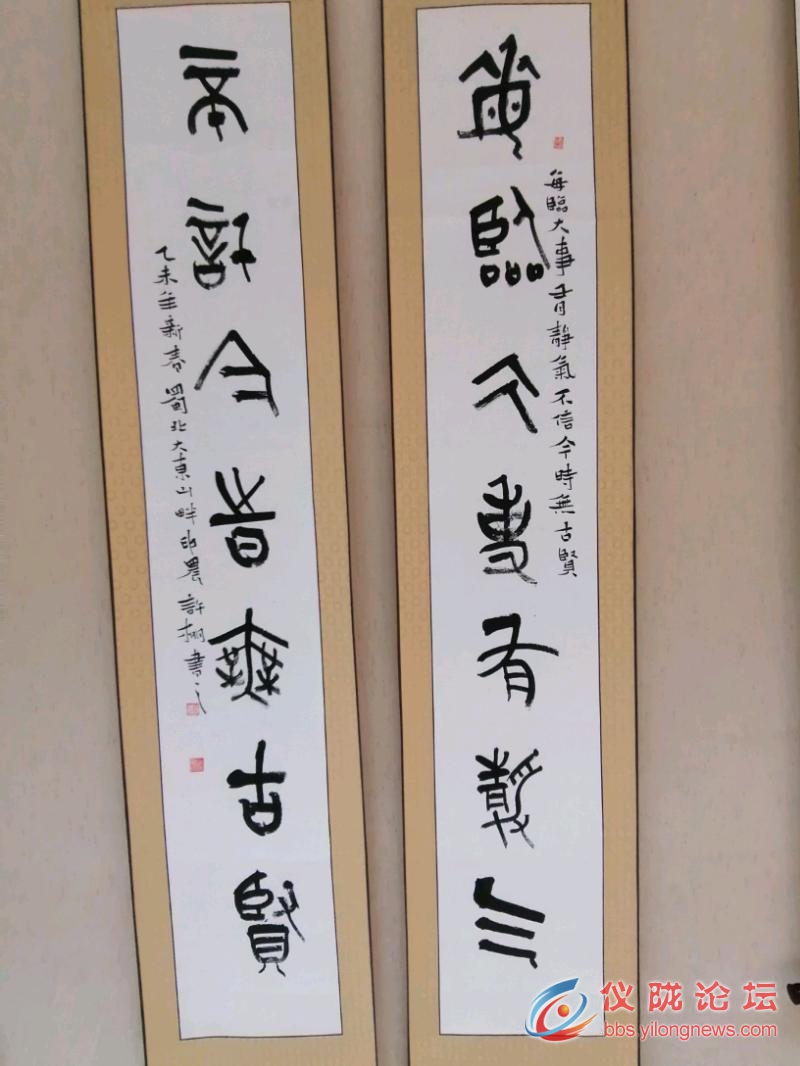 每臨大事有靜气
每臨大事有靜氣不信今時無古賢
不信今時無古賢
乙未年新春 蜀北大東山畔 農 許 書之
仪陇论坛
bbs.yilongnews.com